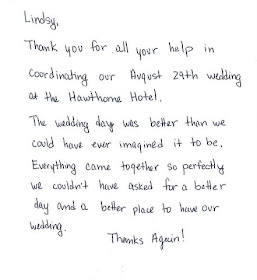 Lindsy,
Thank you for all your help in
coordinating our August 29th wedding
at the Hawthorne Hotel.
The wedding day was better than we
could have ever imagined it to be.
Everything came together so perfectly
we couldn't have asked for a better
day and a better place to have our
wedding.
Thanks Again!